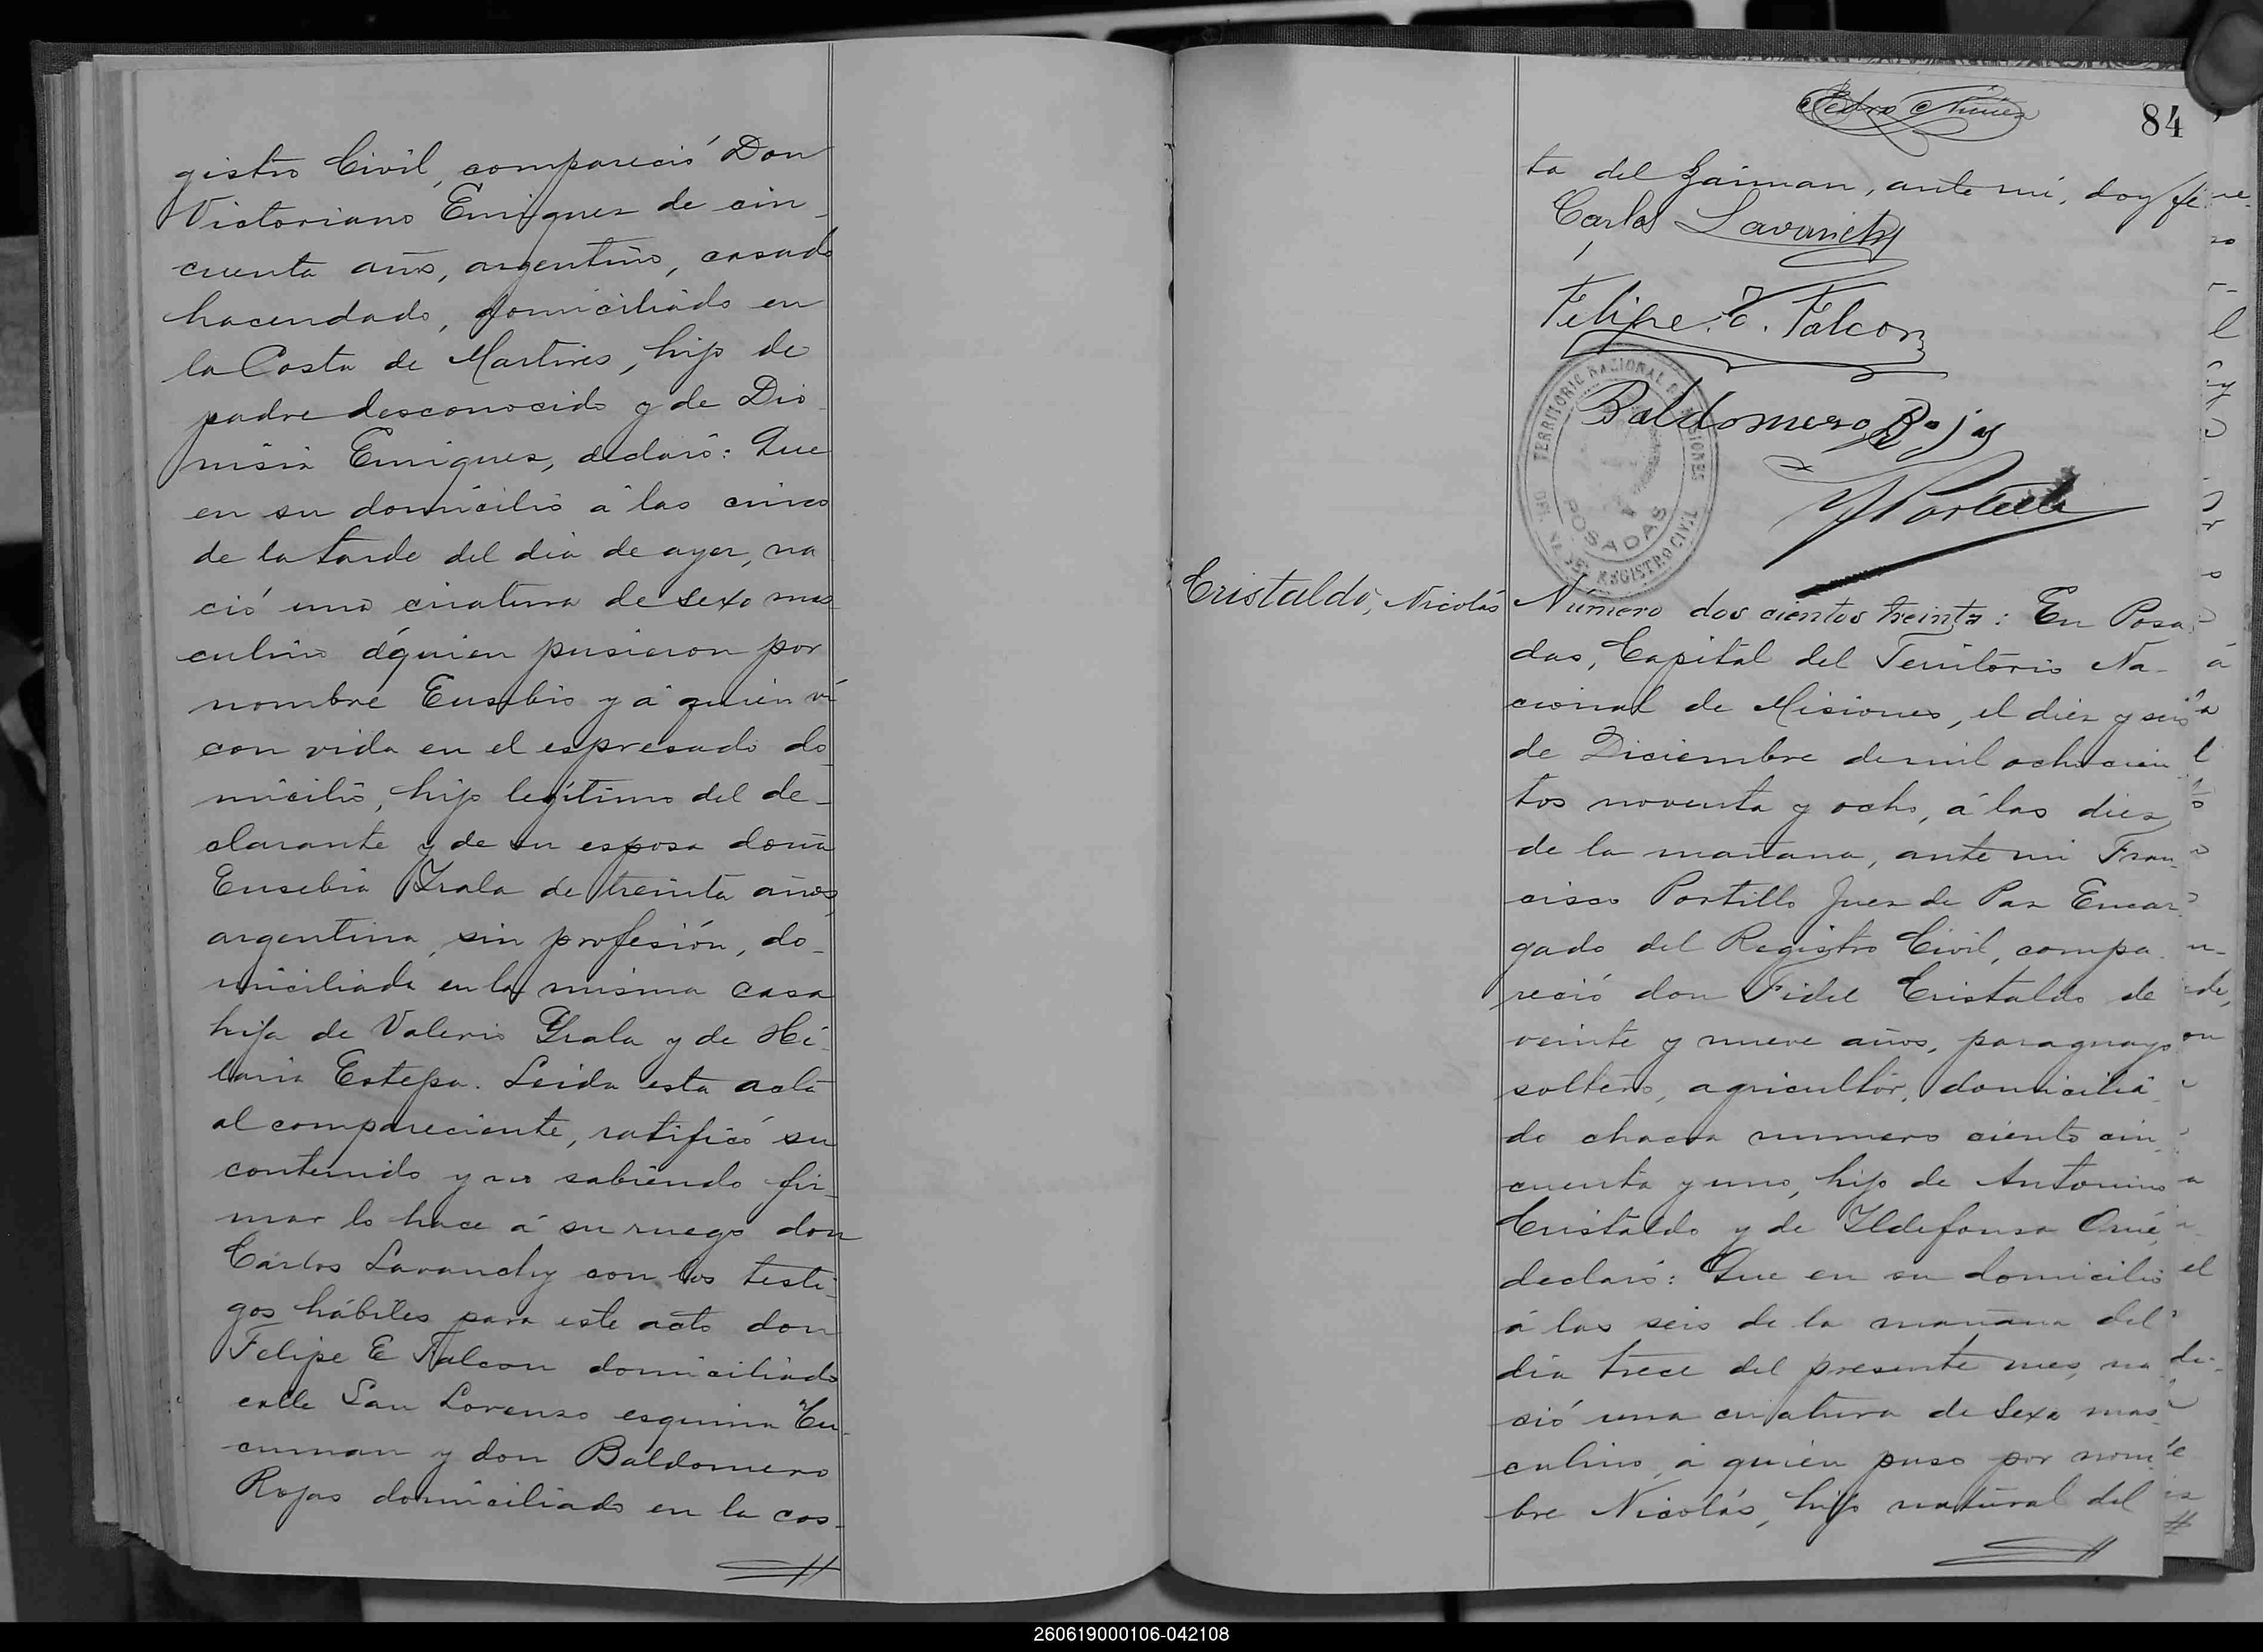 gistro Civil, compareció Don
Victoriano Enriquez de cin-
cuenta años, argentino, casado
hacendado, domiciliado en
la Costa de Martires, hijo de
padre desconocido y de Dio
nisia Enriquez, declaró: Que
en su domicilio á las cinco
de la tarde del dia de ayer, na
ció una criatura de sexo mas
culino á quien pusieron por
nombre Eusebio y á quien ví
con vida en el espresado do-
micilio, hijo legítimo del de-
clarante y de su esposa doña
Eusebia Yrala de treinta años,
argentina, sin profesión, do-
miciliada en la misma casa
hija de Valerio Yrala y de Hi-
laria Estepa. Leida esta acta
al compareciente, ratificó su
contenido y no sabiendo fir-
mar lo hace á su ruego don
Cárlos Lavanchy con los testi-
gos hábiles para este acto don
Felipe E Falcon domiciliado
calle San Lorenzo esquina Tu-
cuman y don Baldomero
Rojas domiciliado en la cos-
Pedro Nuñez
84
ta del Zaiman, ante mí, doy fé
Carlos Lavanchy
Felipe E. Falcon
Baldomero Rojas
TERRITORIO NACIONAL DE MISIONES
POSADAS
REGISTRO CIVIL
F Portillo
Cristaldo, Nicolás
Número dos cientos treinta: En Posa
das, Capital del Territorio Na-
cional de Misiones, el diez y seis
de Diciembre de mil ochocien
tos noventa y ocho, á las diez
de la mañana, ante mi Fran-
cisco Portillo Juez de Paz Encar
gado del Registro Civil, compa-
reció don Fidel Cristaldo de
veinte y nueve años, paraguayo
soltero, agricultor, domicilia
do chacra numero ciento cin
cuenta y uno, hijo de Antonino
Cristaldo y de Yldefonsa Orué,
declaró: Que en su domicilio
á las seis de la mañana del
dia trece del presente mes, na
ció una criatura de sexo mas
culino, á quien puso por nom
bre Nicolás, hijo natural del
260619000106-042108